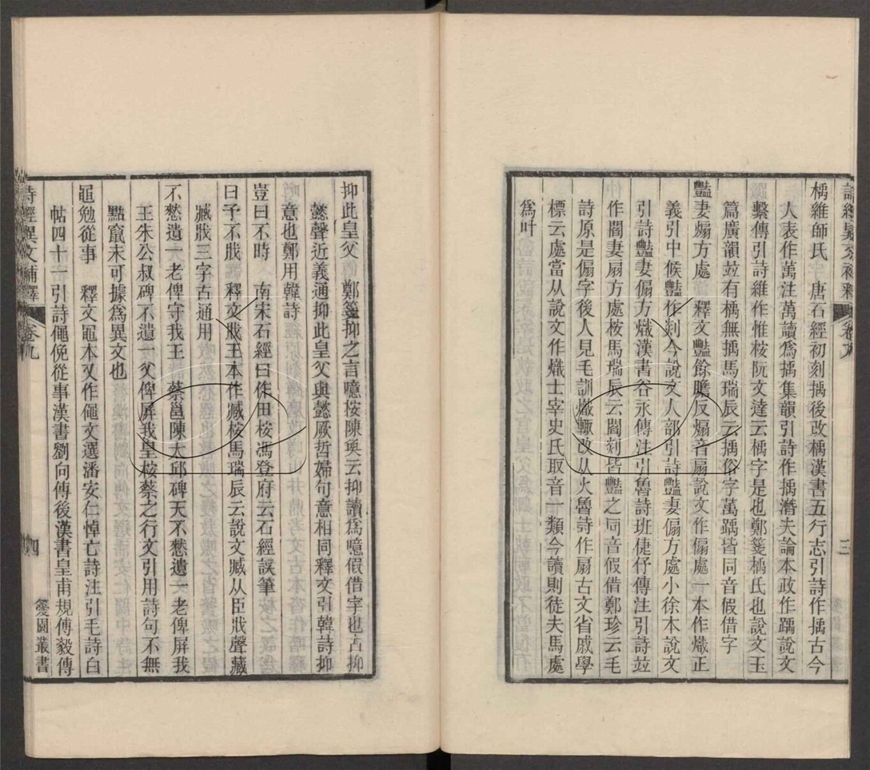 楀維師氏 唐石經初刻撝後改楀漢書五行志引詩作撝古今
人表作萬注萬讀爲撝集韻引詩作撝潛夫論本政作踽說文
繫傳引詩維作惟桉阮文達云楀字是也鄭箋楀氏也說文玉
篇廣韻竝有楀無撝馬瑞辰云撝俗字萬踽皆同音假借字
豔妻煽方處 釋文豔餘贍反煽音扇說文作傓處一本作熾正
義引中候豔作剡今說文人部引詩豔妻傓方處小徐本說文
引詩豔妻傓方熾漢書谷永傳注引魯詩班倢伃傳注引詩竝
作閻妻扇方處桉馬瑞辰云閻剡皆豔之同音假借鄭珍云毛
詩原是傓字後人見毛訓熾輒改从火魯詩作扇古文省戚學
標云處當从說文作熾士宰史氏取音一類今讀則徒夫馬處
爲叶
抑此皇父 鄭箋抑之言噫桉陳奐云抑讀爲噫假借字也古抑
懿聲近義通抑此皇父與懿厥哲婦句意相同釋文引韓詩抑
意也鄭用韓詩
豈曰不時 南宋石經曰作田桉馮登府云石經誤筆
曰予不戕 釋文戕王本作臧桉馬瑞辰云說文臧从臣戕聲藏
臧戕三字古通用
不憖遺一老俾守我王 蔡邕陳太邱碑天不憖遺一老俾屏我
王朱公叔碑不遺一父俾屏我皇桉蔡之行文引用詩句不無
點竄未可據爲異文也
黽勉從事 釋文黽本又作僶文選潘安仁悼亡詩注引毛詩白
帖四十一引詩僶俛從事漢書劉向傳後漢書皇甫規傳毅傳
詩經異文補釋 卷九 四 㷼園叢書